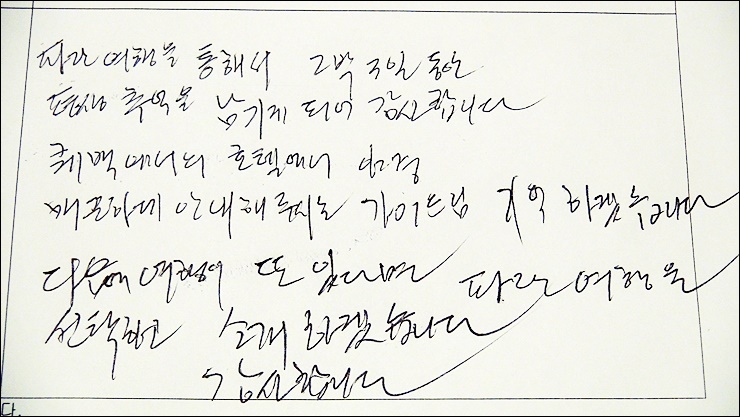 파란 여행을 통해서 2박 3일 동안
동상 추억을 남기게 되어 감사합니다
쾌백에서의 호텔에서 야경
빼곡하게 안내해 주시는 가이드님 기억 하겠습니다
다음에 여행이 또 있다면 파란 여행을
선택하고 소개 하겠습니다
감사합니다
다.